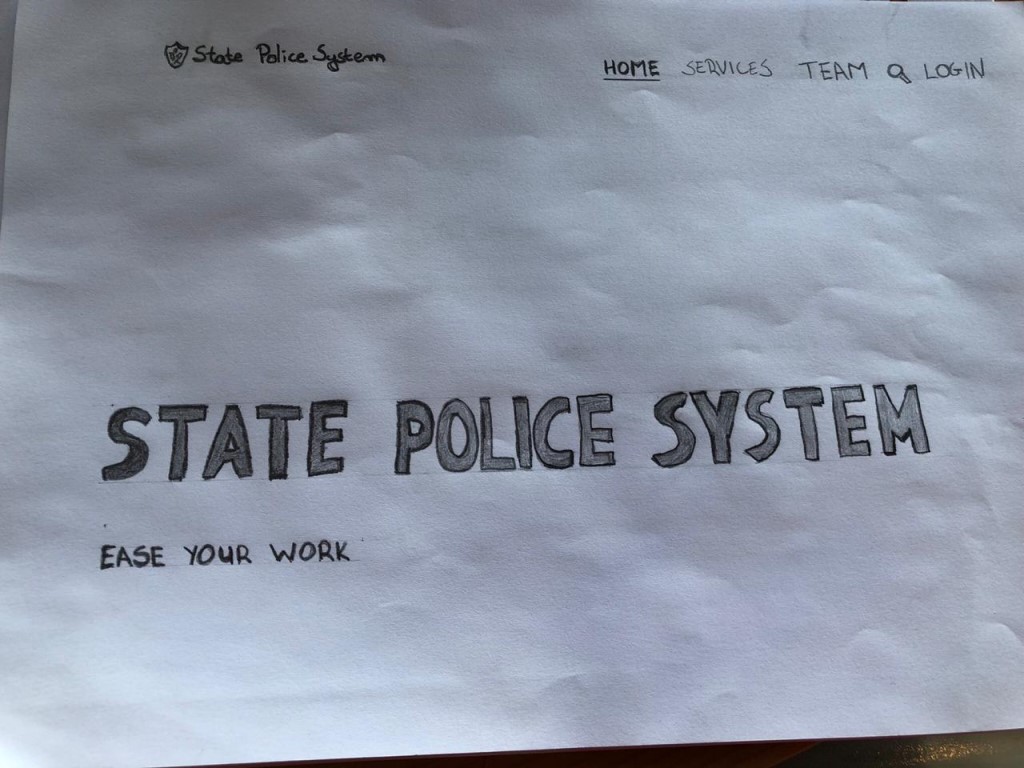 State Police System
HOME SERVICES TEAM LOGIN
STATE POLICE SYSTEM
EASE YOUR WORK